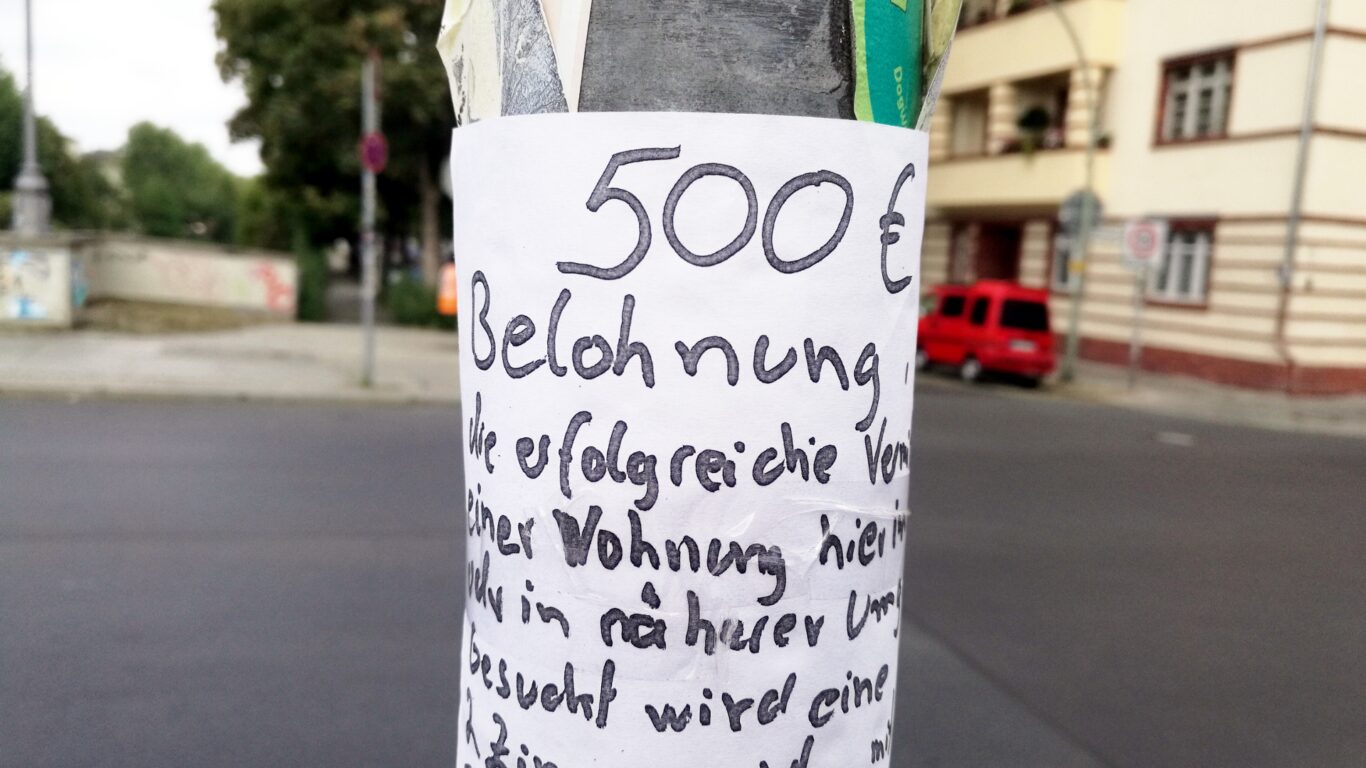 Dogu
500 €
Belohnung,
die erfolgreiche Verm
einer Wohnung hier in
oder in näherer Umg
Gesucht wird eine
2 Zim